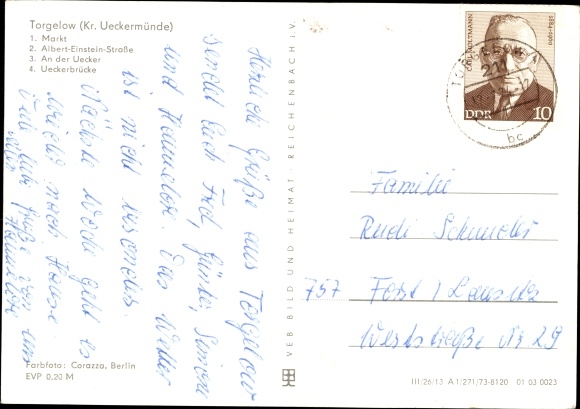 Torgelow (Kr. Ueckermünde)
1. Markt
2. Albert-Einstein-Straße
3. An der Uecker
4. Ueckerbrücke
Herzliche Grüße aus Torgelow
sendet Euch Fred, Günter, Simone
und Hannelore. Das Wetter
ist nicht besonders.
Nächste Woche geht es
wieder nach Hause.
liebe Grüße von uns
allen Hannelore
Farbfoto: Corazza, Berlin
EVP 0,20 M
VEB BILD UND HEIMAT · REICHENBACH i.V.
CARL MOLTMANN 1884-1960
DDR 10
TORGELOW 1
211
bc
Familie
Rudi Schmeler
757 Forst / Lausitz
Weststraße Nr 29
III/26/13 A 1/271/73-8120 01 03 0023